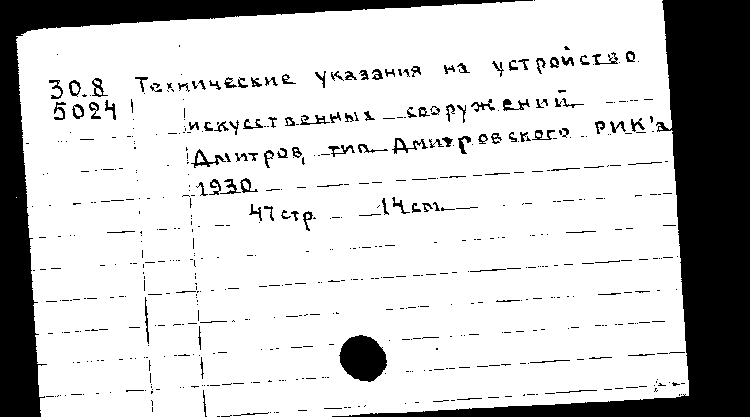 30.8 Технические указания на устройство
5024 искусственных сооружений.
Дмитров, тип. Дмитровского РИК'а
1930.
47 стр. 14 см.